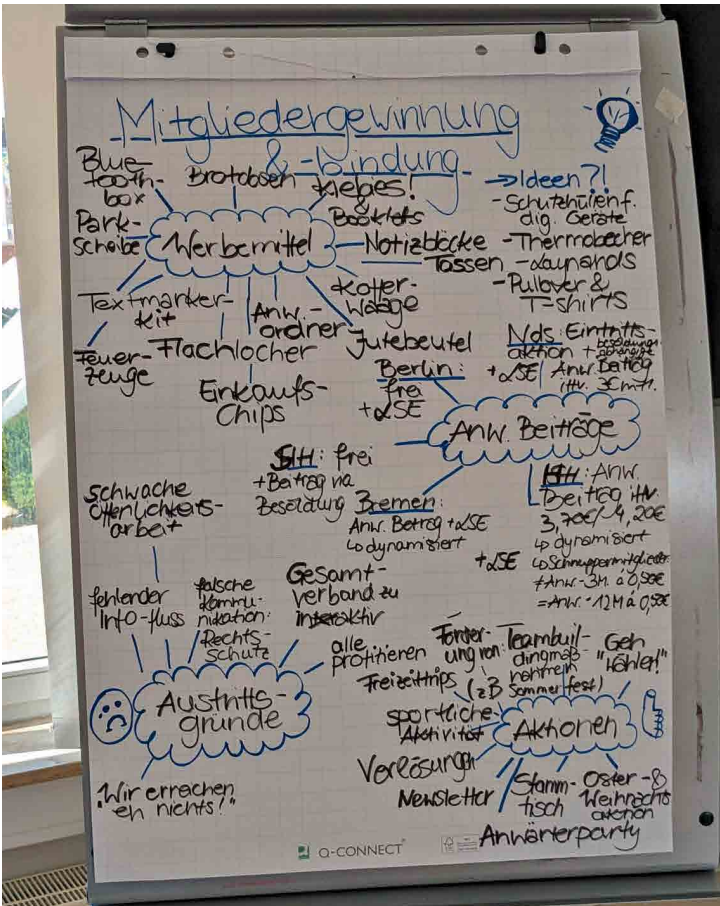 Mitgliedergewinnung
& -bindung
Blue-
tooth-
box
Brotdosen
Klebes!
Booklets
Park-
scheibe
Werbemittel
Notizblöcke
Tassen
Koffer-
Waage
Textmarker-
kit
Anw.-
ordner
Jutebeutel
Feuer-
zeuge
Flachlocher
Einkaufs-
Chips
→ Ideen?!
- Schutzhüllen f.
dig. Geräte
- Thermobecher
- Laynards
- Pullover &
T-shirts
Anw. Beiträge
Berlin:
frei
+ LSE
Nds: Eintritts-
aktion +
+ LSE/ Anw. Beitrag
3€ mtl.
SH: frei
+ Beitrag via
Besoldung
Bremen:
Anw. Beitrag + LSE
↳ dynamisiert
HH: Anw.
Beitrag iHv.
3,70€/4,20€
↳ dynamisiert
+ LSE
↳ Schnuppermitglieder
≠ Anw - 3M. á 0,50€
= Anw. - 12M á 0,50€
schwache
Öffenlichkeits-
arbeit
fehlender
Info-fluss
falsche
Kommu-
nikation:
Rechts-
schutz
Gesamt-
verband zu
inaktiv
alle
profitieren
Austritts-
gründe
"Wir erreichen
eh nichts!"
Förder-
ung von:
Teambuil-
dingmaß-
nahmen
(zB Sommerfest)
"Geh
Wählen!"
Freizeittrips
sportliche
Aktivität
Aktionen
Verlosungen
Newsletter
Stamm-
tisch
Oster- &
Weihnachts
aktionen
Anwärterparty
Q-CONNECT